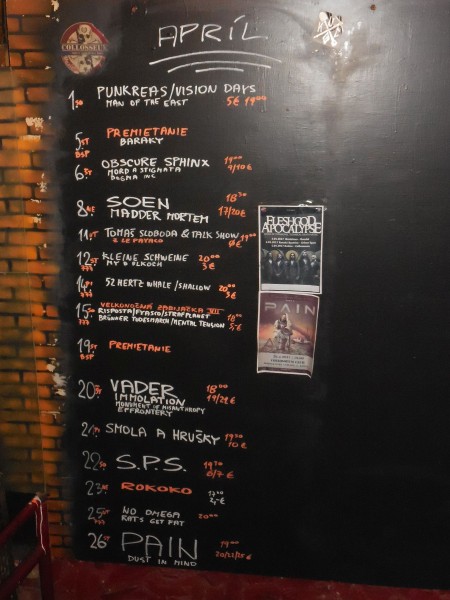 COLLOSSEUM
APRÍL
1. SO PUNKREAS/VISION DAYS
MAN OF THE EAST 5€ 19⁰⁰
5. ST PREMIETANIE
BSP BARAKY
6. OBSCURE SPHINX 19⁰⁰
MORDA STIGMATA 9/10€
DOGMA INC.
8. SOEN 18³⁰
MADDER MORTEM 17/20€
11. TOMÁŠ SLOBODA & TALK SHOW 19⁰⁰
Z LE PAYACO 0€
12. ST KLEINE SCHWEINE 20⁰⁰
777 MY O VLKOCH 3€
14. 52 HERTZ WHALE/SHALLOV 20⁰⁰
777 3€
15. VEĽKONOČNÁ ZABÍJAČKA VIII
RISPOSTA/FYASKO/STRAPPLANET 18⁰⁰
777 BRÜNNER TODESMARCH/MENTAL TENSION 5,-€
19. ST PREMIETANIE
BSP
20. VADER 18⁰⁰
IMMOLATION 19/22€
MONUMENT OF MISANTHROPY
EFFRONTERY
21. PI SMOLA A HRUŠKY 19³⁰
10€
22. SO S.P.S. 19³⁰
6/7€
23. NE ROKOKO 17³⁰
2,-€
25. NO OMEGA 20⁰⁰
777 RATS GET FAT
26. ST PAIN 19⁰⁰
DUST IN MIND 20/22/25€
FLESHGOD
APOCALYPSE
PAIN